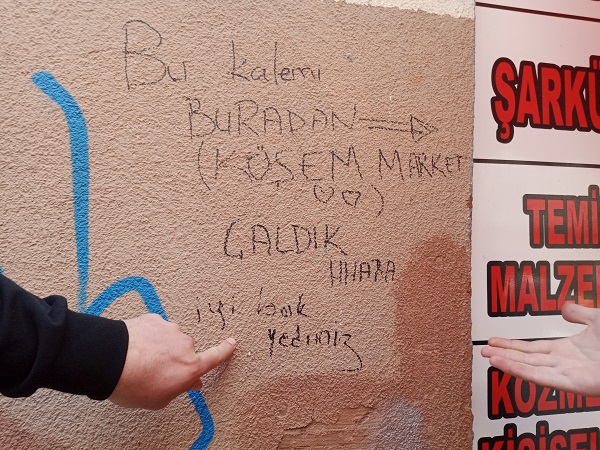 Bu kalemi
BURADAN
(KÖŞEM MARKET
)
ÇALDIK
iyi
yediniz
ŞARKÜ
TEMİ
MALZE
KOZME
KİŞİSEL